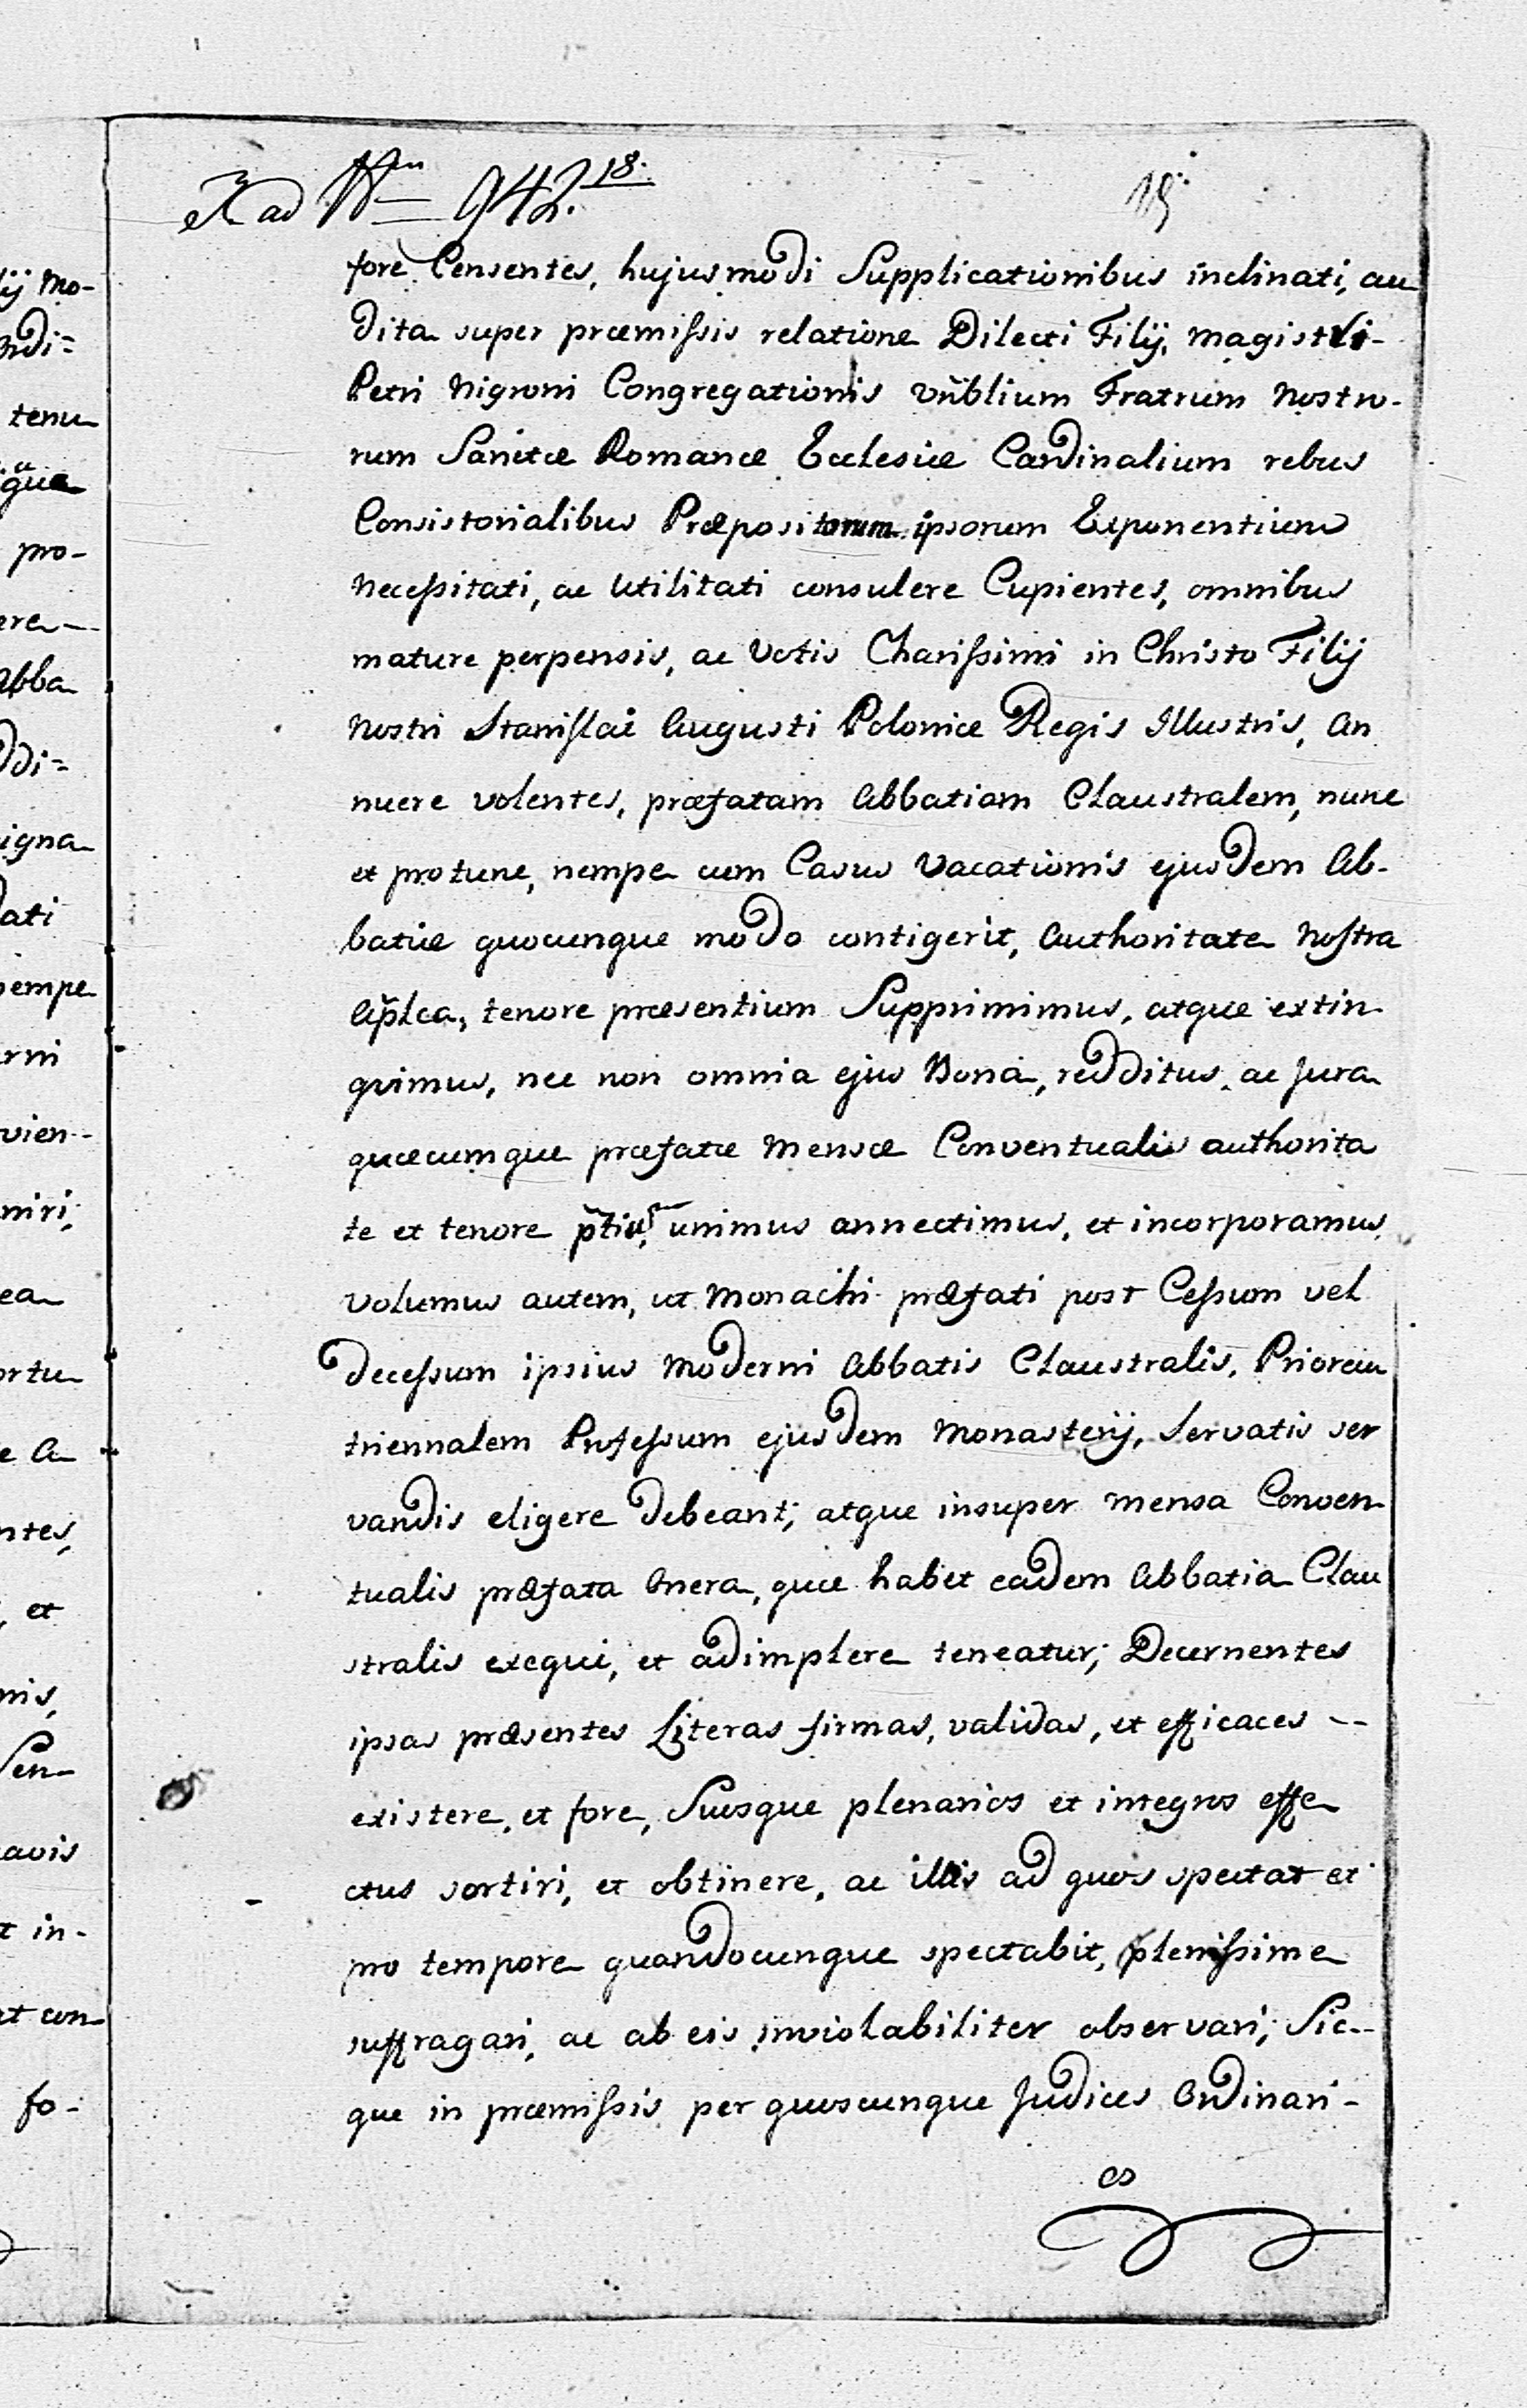 ad Nrm 942. 18.
15
fore Censentes, hujusmodi Supplicationibus inclinati, au
dita super præmissis relatione Dilecti Filij, Magistri-
Petri Nigroni Congregationis vñblium Fratrum Nostro-
rum Sanctæ Romanæ Ecclesiæ Cardinalium rebus
Consistorialibus Præpositorum ipsorum Exponentium
Necessitati, ac Utilitati consulere Cupientes, omnibus
mature perpensis, ac Votis Charissimi in Christo Filij
Nostri Stanislai Augusti Poloniæ Regis Illustris, an
nuere volentes, præfatam Abbatiam Claustralem, nunc
et pro tunc, nempe cum Casus Vacationis ejusdem Ab-
batiæ quocunque modo contigerit, Authoritate Nostra
Aplca, tenore præsentium Supprimimus, atque extin
guimus, nec non omnia ejus Bona, redditus, ac Jura
quæcumque præfatæ Mensæ Conventualis authorita
te et tenore p̃tius, unimus annectimus, et incorporamus,
Volumus autem, ut Monachi præfati post Cessum vel
Decessum ipsius Moderni Abbatis Claustralis, Priorem
triennalem Professum ejusdem Monasterij, Servatis ser
vandis eligere debeant; atque insuper mensa Conven
tualis præfata Onera, quæ habet eadem Abbatia Clau
stralis exequi, et adimplere teneatur; Decernentes
ipsas præsentes Literas firmas, validas, et efficaces --
existere, et fore, Suosque plenarios et integros effe
ctus sortiri, et obtinere, ac illis ad quos spectat et
pro tempore quandocunque spectabit, plenissime
suffragari, ac ab eis inviolabiliter observari; Sic--
que in præmissis per quoscunque Judices Ordinari-
os
lij Mo-
ndi=
tenu
que
pro-
ere-
Abba
ddi=
igna
dati
nempe
erni
vien-
niri;
ea
ortu
e A
ntes,
, et
nis,
Sen-
avis
t in-
at con
fo-